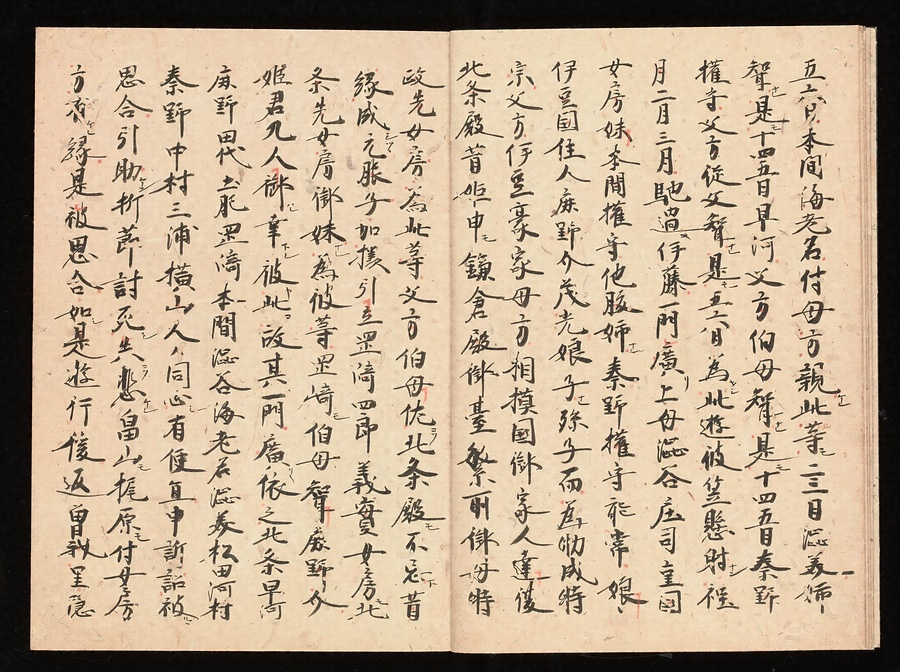 五六日本間海老名付母方親此等二三日渋美姉
聟是十四五日早河父方伯母聟是十四五日秦野
権守父方従父聟是五六日為此遊彼笠懸射程
月二月三月馳過伊藤一門広上母渋谷庄司重国
女房妹本間権守他腹姉秦野権守能常娘
伊豆国住人鹿野介茂光娘子孫子而為助成特
宗父方伊豆豪家母方相模国御家人達優
北条殿昔姫申鎌倉殿御台繁昌御母時
政先女房為此等父方伯母佐北条殿不忘昔
縁成元服子如様引立罡崎四郎義実女房北
条先女房御妹為彼等罡崎伯母聟鹿野介
姫君九人御幸彼此故其一門広依之北条早河
鹿野田代土肥罡崎本間渋谷海老名渋美松田河村
秦野中村三浦横山人人同心有便宜申訴詔被
思合引助折節討死共悲畠山梶原付女房
方有縁是被思合如是遊行後返曽我里隠